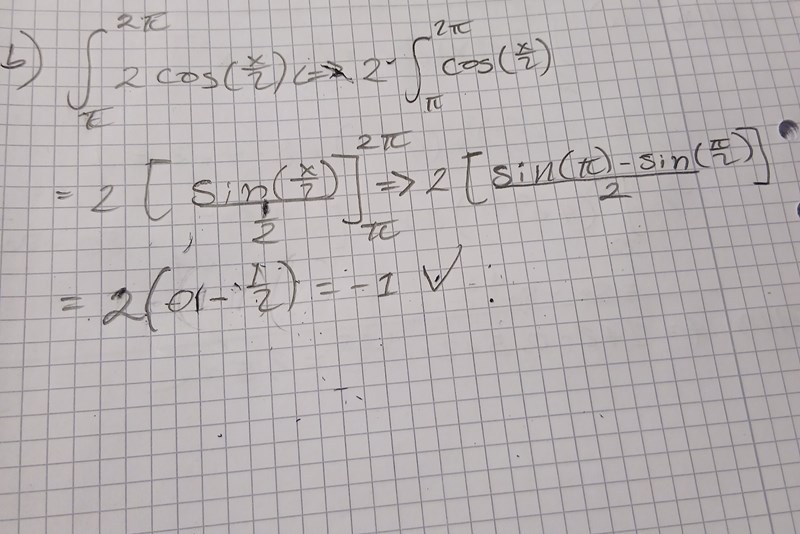 b) ∫_π^{2π} 2 cos(x/2) <=> 2·∫_π^{2π} cos(x/2)
= 2 [ sin(x/2) / (1/2) ]_π^{2π} => 2 [ (sin(π) - sin(π/2)) / 2 ]
= 2(0 - 1/2) = -1 ✓